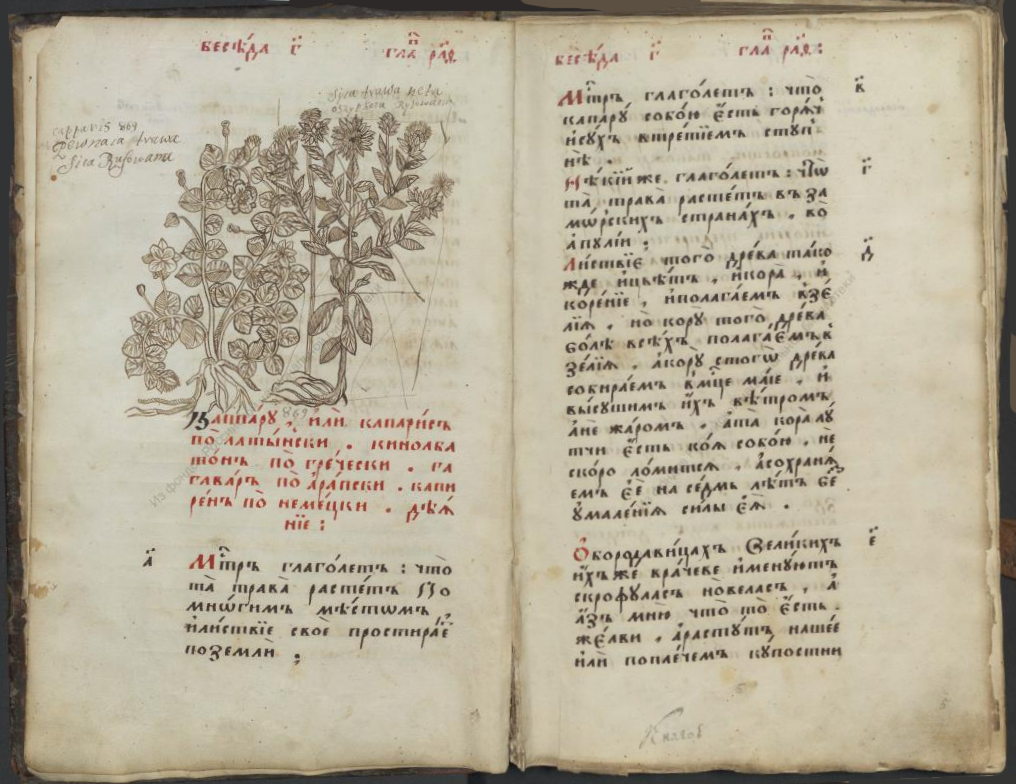 БЕСѢ́ДА г҃ ГЛА̑ рл҃ѳ
sica trawa
cappar15 869
trawa
869
Каппа́ру, и҆лѝ капари́съ
по̀ латы́нски . кинокба
то́нъ по̀ гре́чески . га
гава́ръ по̀ а҆ра́пски . капи
ре́нъ по̀ неме́цки . дѣѧ́
нїе :
а҃ Мт҃ръ глаго́летъ : что̀
та̀ трава̀ расте́тъ по
мнѡ́гимъ мѣ́стомъ
и҆ли́ствїе своѐ простира́е
поземлѝ ;
БЕСѢ́ДА г҃ ГЛА̑ рл҃ѳ :
Мт҃ръ глаго́летъ : что̀ в҃
капа́ру собо́ю є҆́сть горѧ́ч
и҆су́хъ втре́тїемъ ступ
нѣ̀ .
Нѣ́кїй же глаго́летъ : что̀ г҃
та̀ трава̀ расте́тъ въ за
мо́рскихъ страна́хъ . во̀
а҆пу́лїи ;
Ли́ствїе того̀ дре́ва тако д҃
жде и҆цвѣ́тъ , и҆кора̀ , и҆
коре́нїе , и҆полага́емъ взе́
лїѧ . но̀ кору̀ того̀ дре́ва
бо́лѣ всѣ́хъ полага́емъ в
зе́лїѧ . а҆кору̀ стогѡ̀ дре́ва
собира́емъ вмц҃е ма́їе , и҆
высу́шимъ и҆́хъ вѣ́тромъ
а҆не жа́ромъ . а҆та̀ кора̀ лу́
тчи є҆́сть ко́ѧ собо́ю , не
ско́ро ло́митсѧ , а҆сохранѧ́
емъ є҆ѐ на се́дмь лѣ́тъ бе́з
ума́ленїѧ си́лы є҆ѧ̀ .
Ѻ҆бородави́цахъ , вели́кихъ є҃
и҆́хъ же вра́чеве и҆мену́ютъ
скрофуласъ новеласъ , а҆
а҆́зъ мню̀ что то̀ є҆́сть .
же́лви , а҆расту́тъ нашѣ́е
и҆лѝ поплече́мъ ку́постни
5